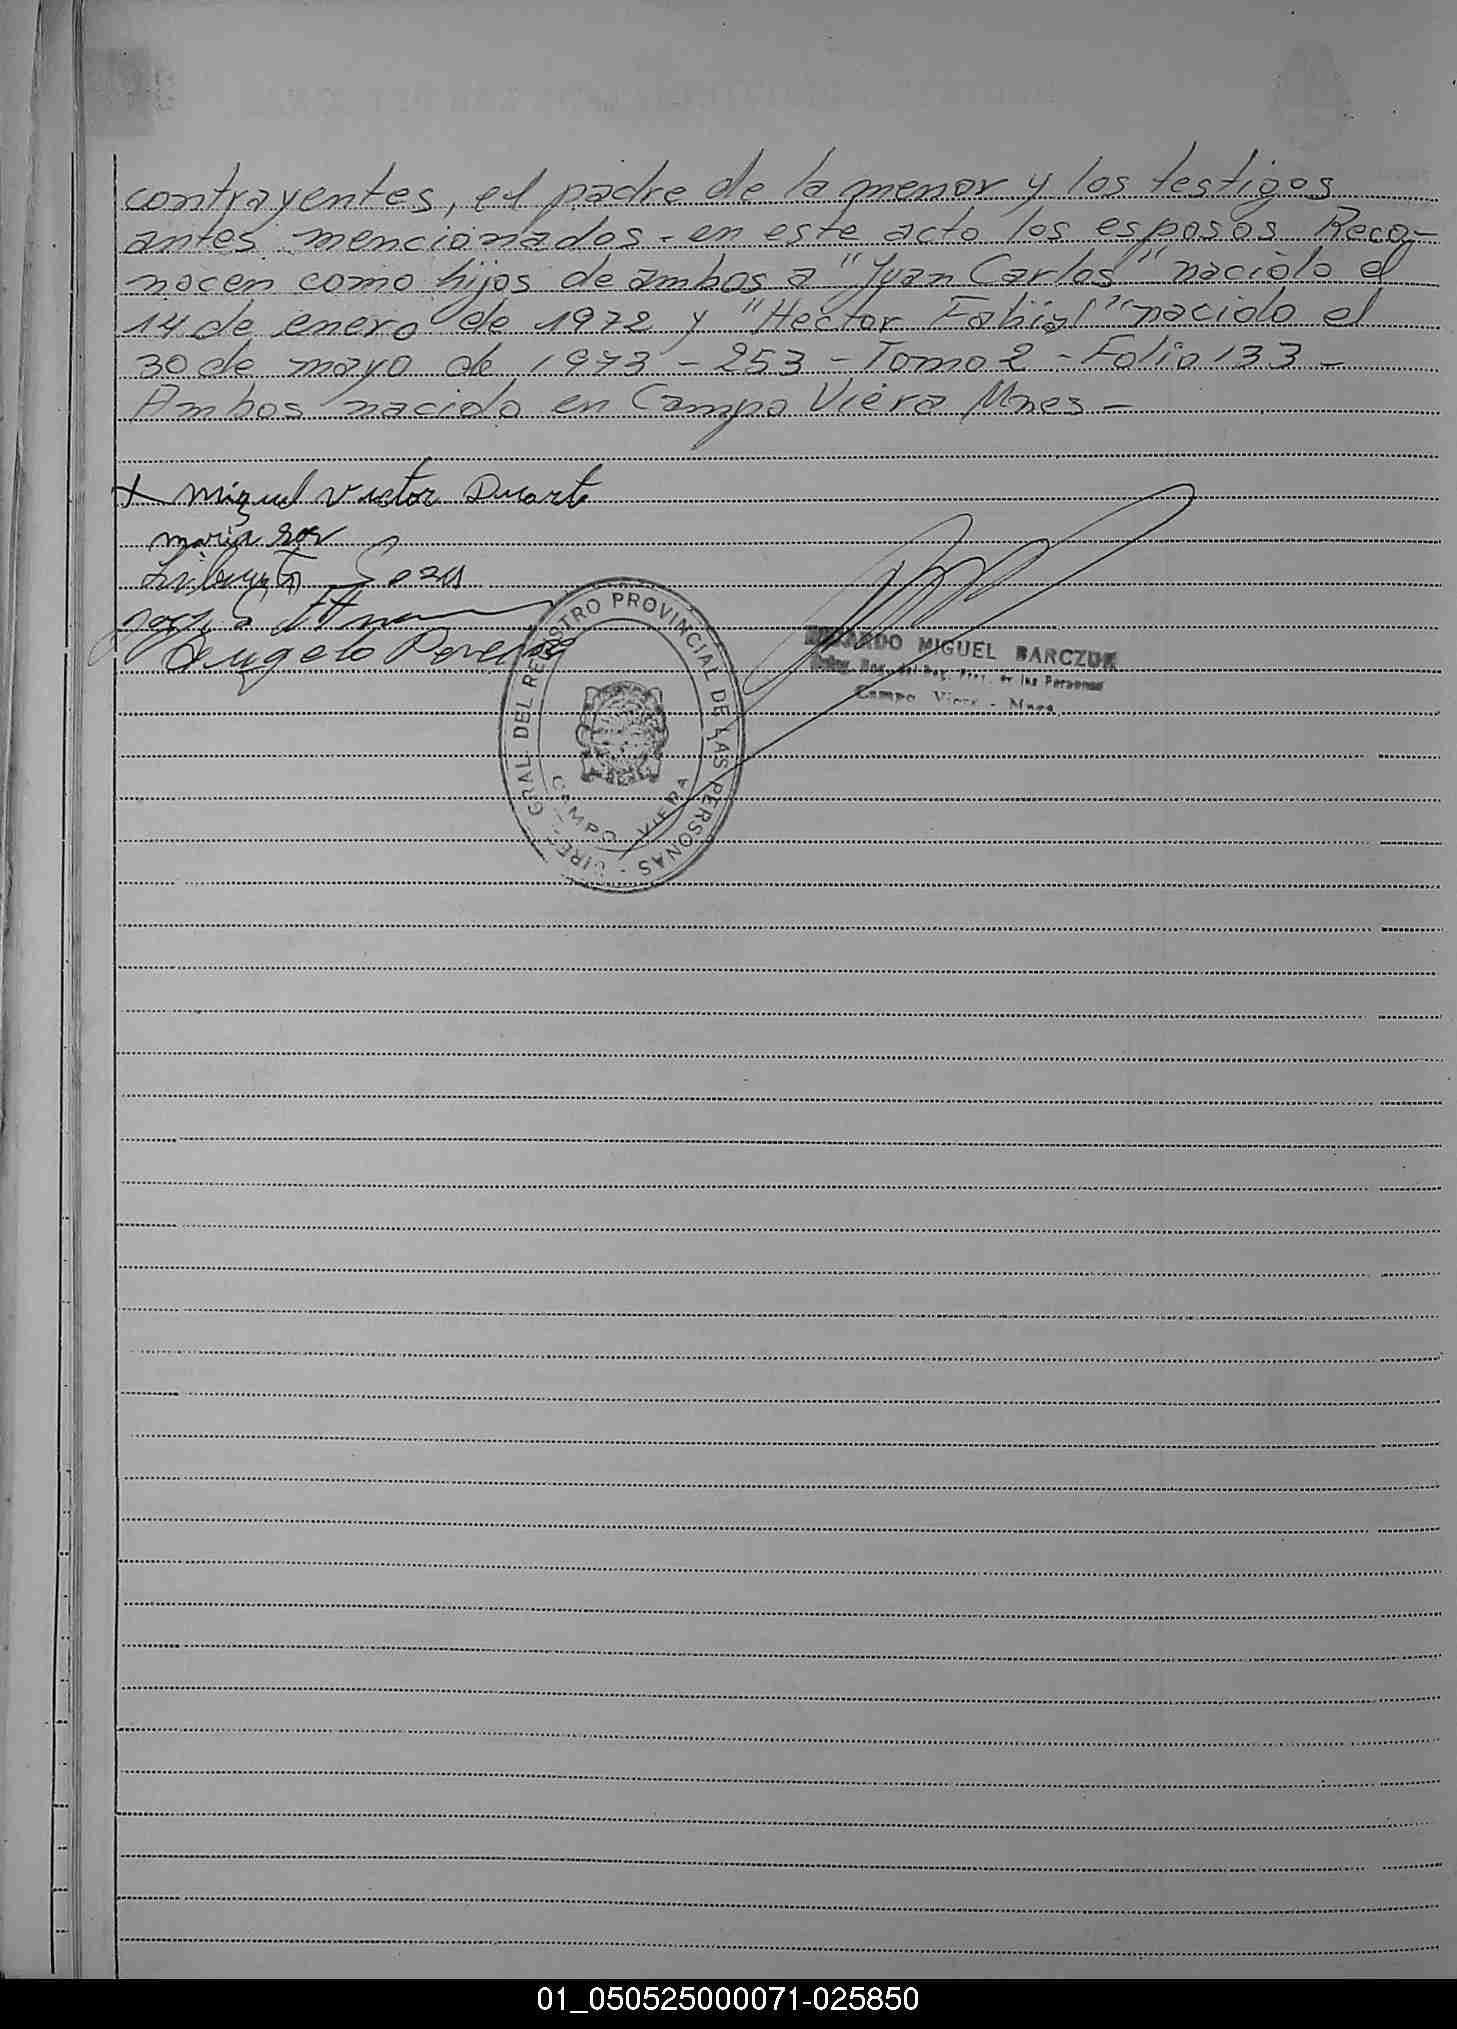 contrayentes, el padre de la menor y los testigos
antes mencionados - en este acto los esposos Reco-
nocen como hijos de ambos a "Juan Carlos" nacido el
14 de enero de 1972 y "Hector Fabial" nacido el
30 de mayo de 1973 - 253 - Tomo 2 - Folio 133 -
Ambos nacido en Campo Viera Mnes -
x Miguel Victor Duarte
maria
Angelo
DIREC. GRAL. DEL REGISTRO PROVINCIAL DE LAS PERSONAS -
CAMPO VIERA
MIGUEL BARCZUK
de las Personas
Campo Viera - Mnes.
01_050525000071-025850